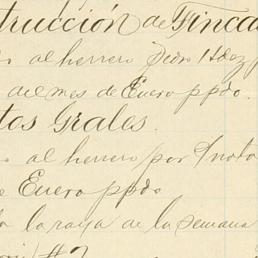 trucción de Finca
al herrero Pedro Hdez
del mes de Enero ppdo.
tos Grales.
al herrero por Snota
Enero ppdo
la raya de la semana
#2